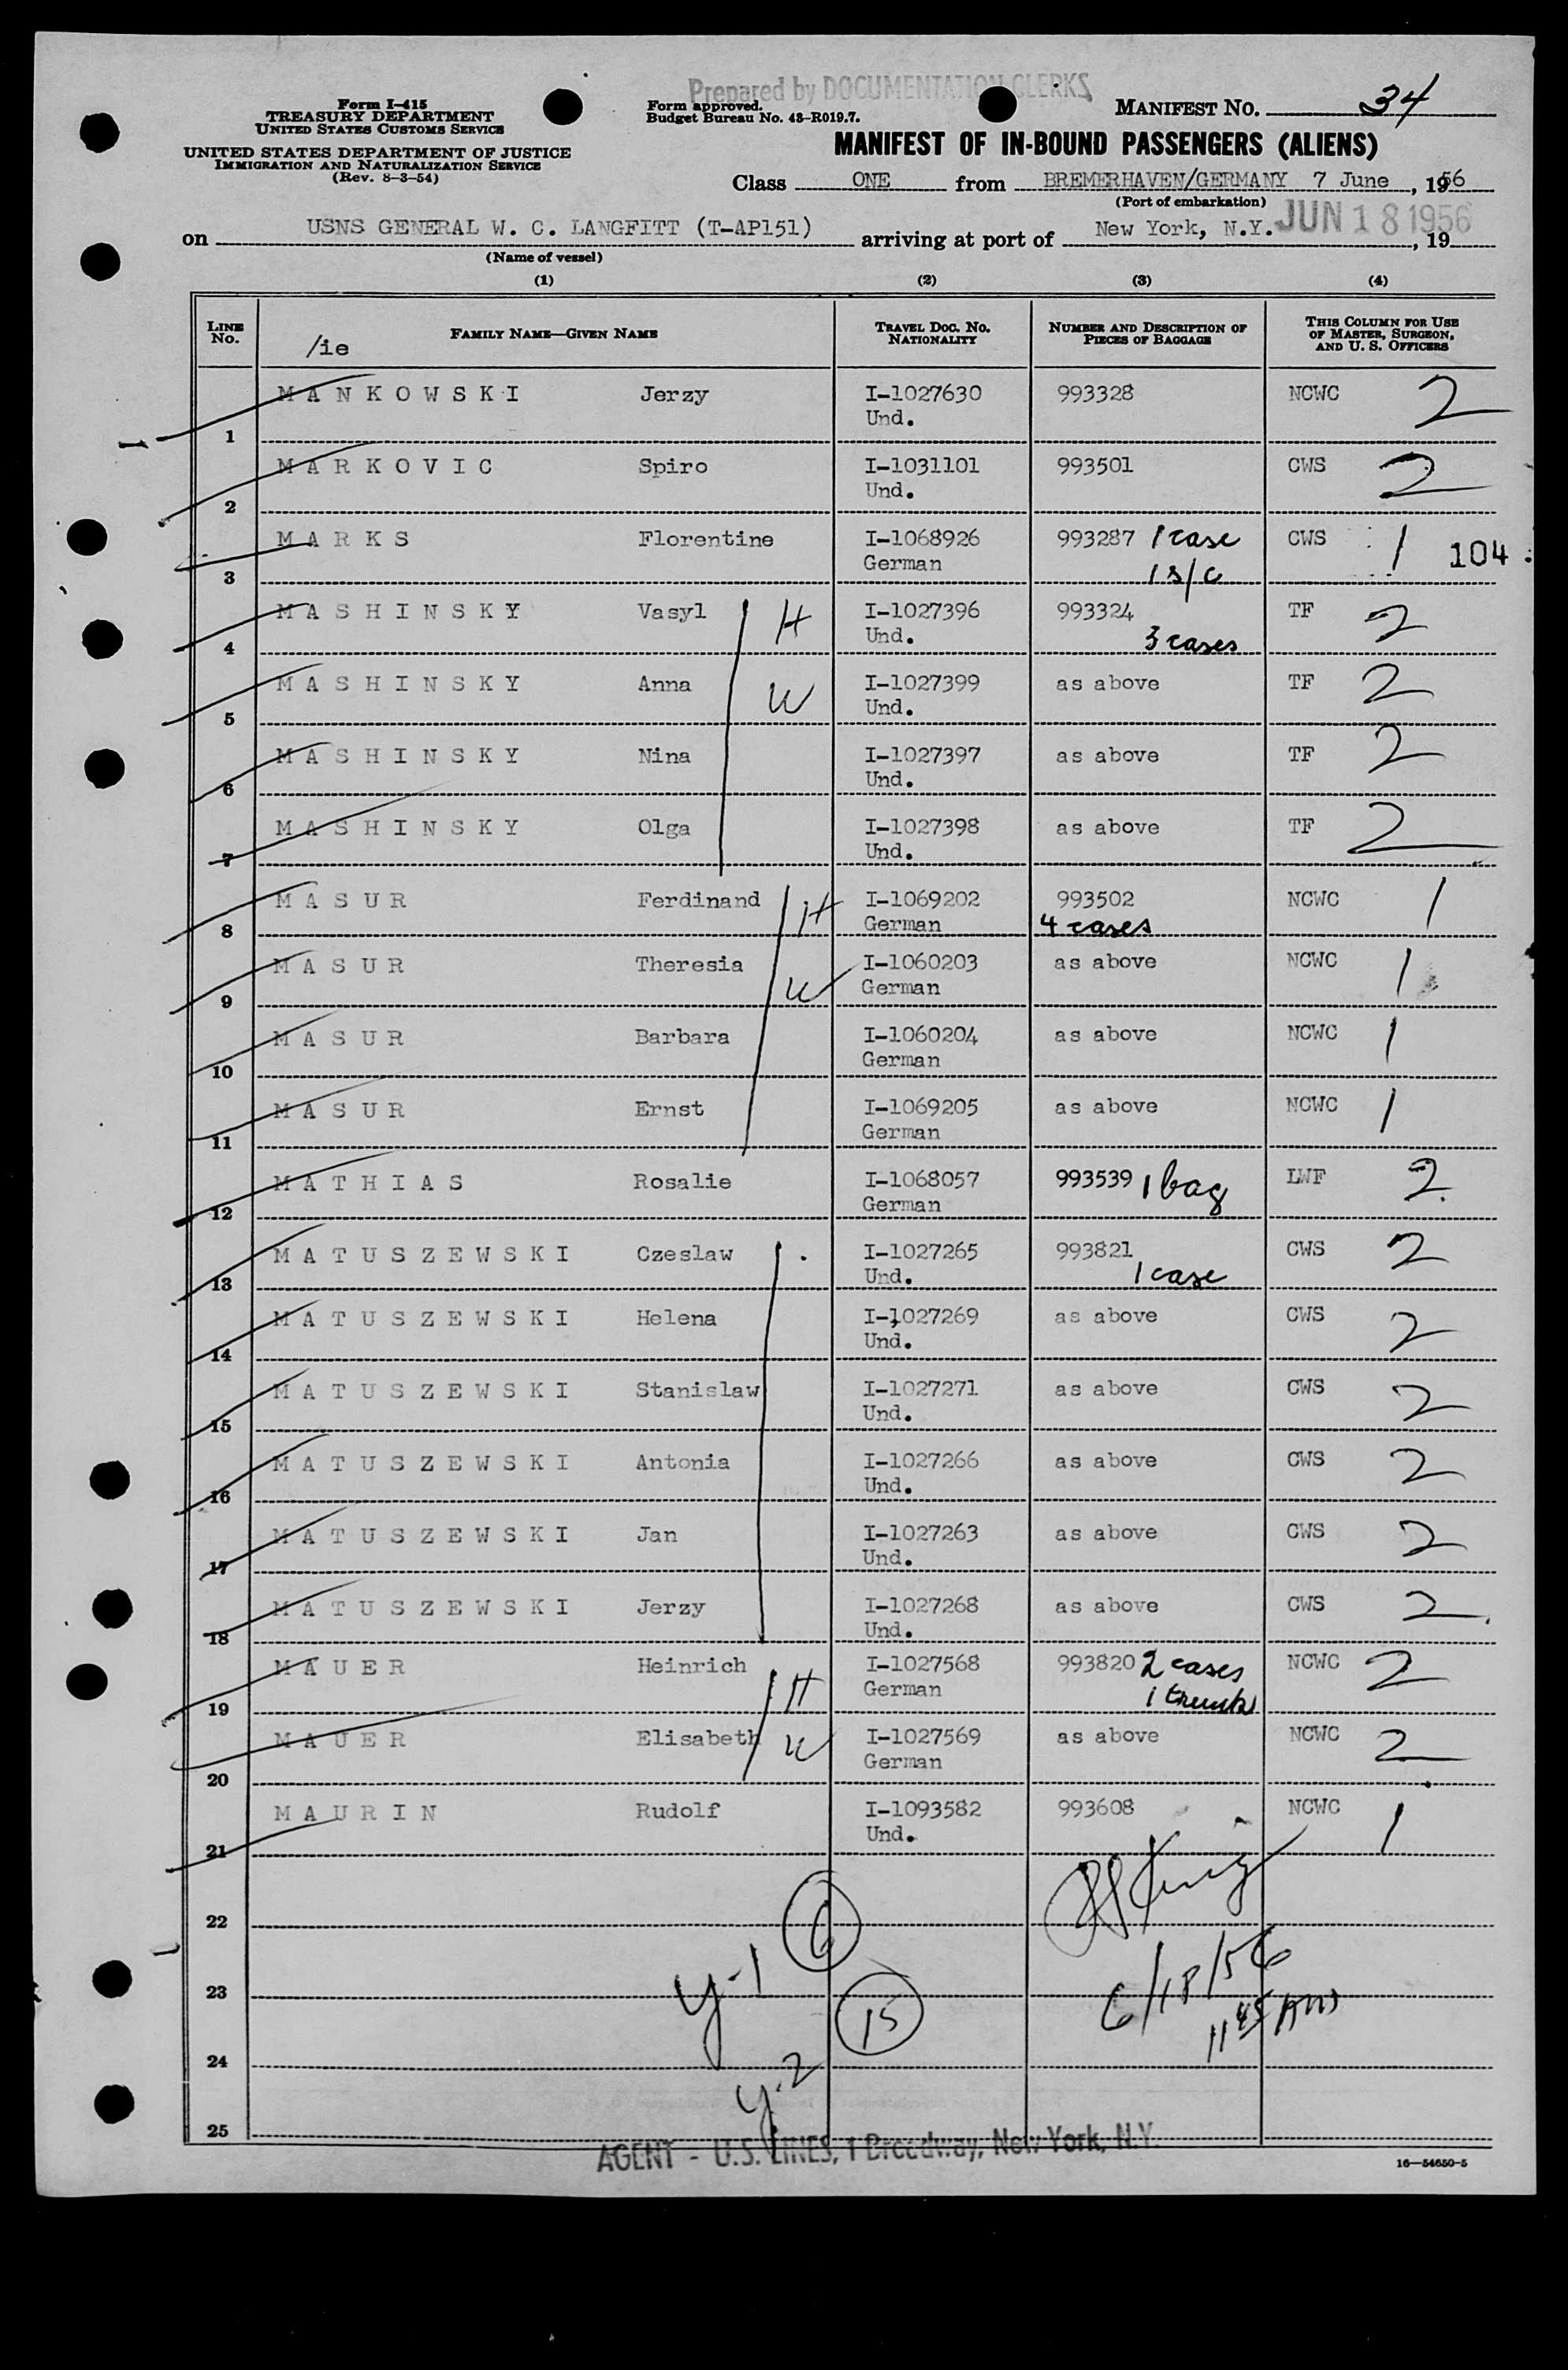 Prepared by DOCUMENTATION CLERKS
Form I-415
TREASURY DEPARTMENT
UNITED STATES CUSTOMS SERVICE
UNITED STATES DEPARTMENT OF JUSTICE
IMMIGRATION AND NATURALIZATION SERVICE
(Rev. 8-3-54)
Form approved.
Budget Bureau No. 43-R019.7.
MANIFEST NO. 34
MANIFEST OF IN-BOUND PASSENGERS (ALIENS)
Class ONE from BREMERHAVEN/GERMANY 7 June, 1956
(Port of embarkation)
on USNS GENERAL W. C. LANGFITT (T-AP151) arriving at port of New York, N.Y. JUN 18 1956, 19
(Name of vessel)
(1) (2) (3) (4)
LINE No. /ie FAMILY NAME—GIVEN NAME TRAVEL DOC. NO. NATIONALITY NUMBER AND DESCRIPTION OF PIECES OF BAGGAGE THIS COLUMN FOR USE OF MASTER, SURGEON, AND U. S. OFFICERS
1 MANKOWSKI Jerzy I-1027630 Und. 993328 NCWC 2
2 MARKOVIC Spiro I-1031101 Und. 993501 CWS 2
3 MARKS Florentine I-1068926 German 993287 1 case 1 s/c CWS 1 104
4 MASHINSKY Vasyl H I-1027396 Und. 993324 3 cases TF 2
5 MASHINSKY Anna W I-1027399 Und. as above TF 2
6 MASHINSKY Nina I-1027397 Und. as above TF 2
7 MASHINSKY Olga I-1027398 Und. as above TF 2
8 MASUR Ferdinand H I-1069202 German 993502 4 cases NCWC 1
9 MASUR Theresia W I-1060203 German as above NCWC 1
10 MASUR Barbara I-1060204 German as above NCWC 1
11 MASUR Ernst I-1069205 German as above NCWC 1
12 MATHIAS Rosalie I-1068057 German 993539 1 bag LWF 2
13 MATUSZEWSKI Czeslaw I-1027265 Und. 993821 1 case CWS 2
14 MATUSZEWSKI Helena I-1027269 Und. as above CWS 2
15 MATUSZEWSKI Stanislaw I-1027271 Und. as above CWS 2
16 MATUSZEWSKI Antonia I-1027266 Und. as above CWS 2
17 MATUSZEWSKI Jan I-1027263 Und. as above CWS 2
18 MATUSZEWSKI Jerzy I-1027268 Und. as above CWS 2
19 MAUER Heinrich H I-1027568 German 993820 2 cases 1 trunk NCWC 2
20 MAUER Elisabeth W I-1027569 German as above NCWC 2
21 MAURIN Rudolf I-1093582 Und. 993608 NCWC 1
22
23
24
25
y-1 6
y-2 15
6/18/56
11 45 AM
AGENT - U.S. LINES, 1 Broadway, New York, N.Y.
16—54650-5